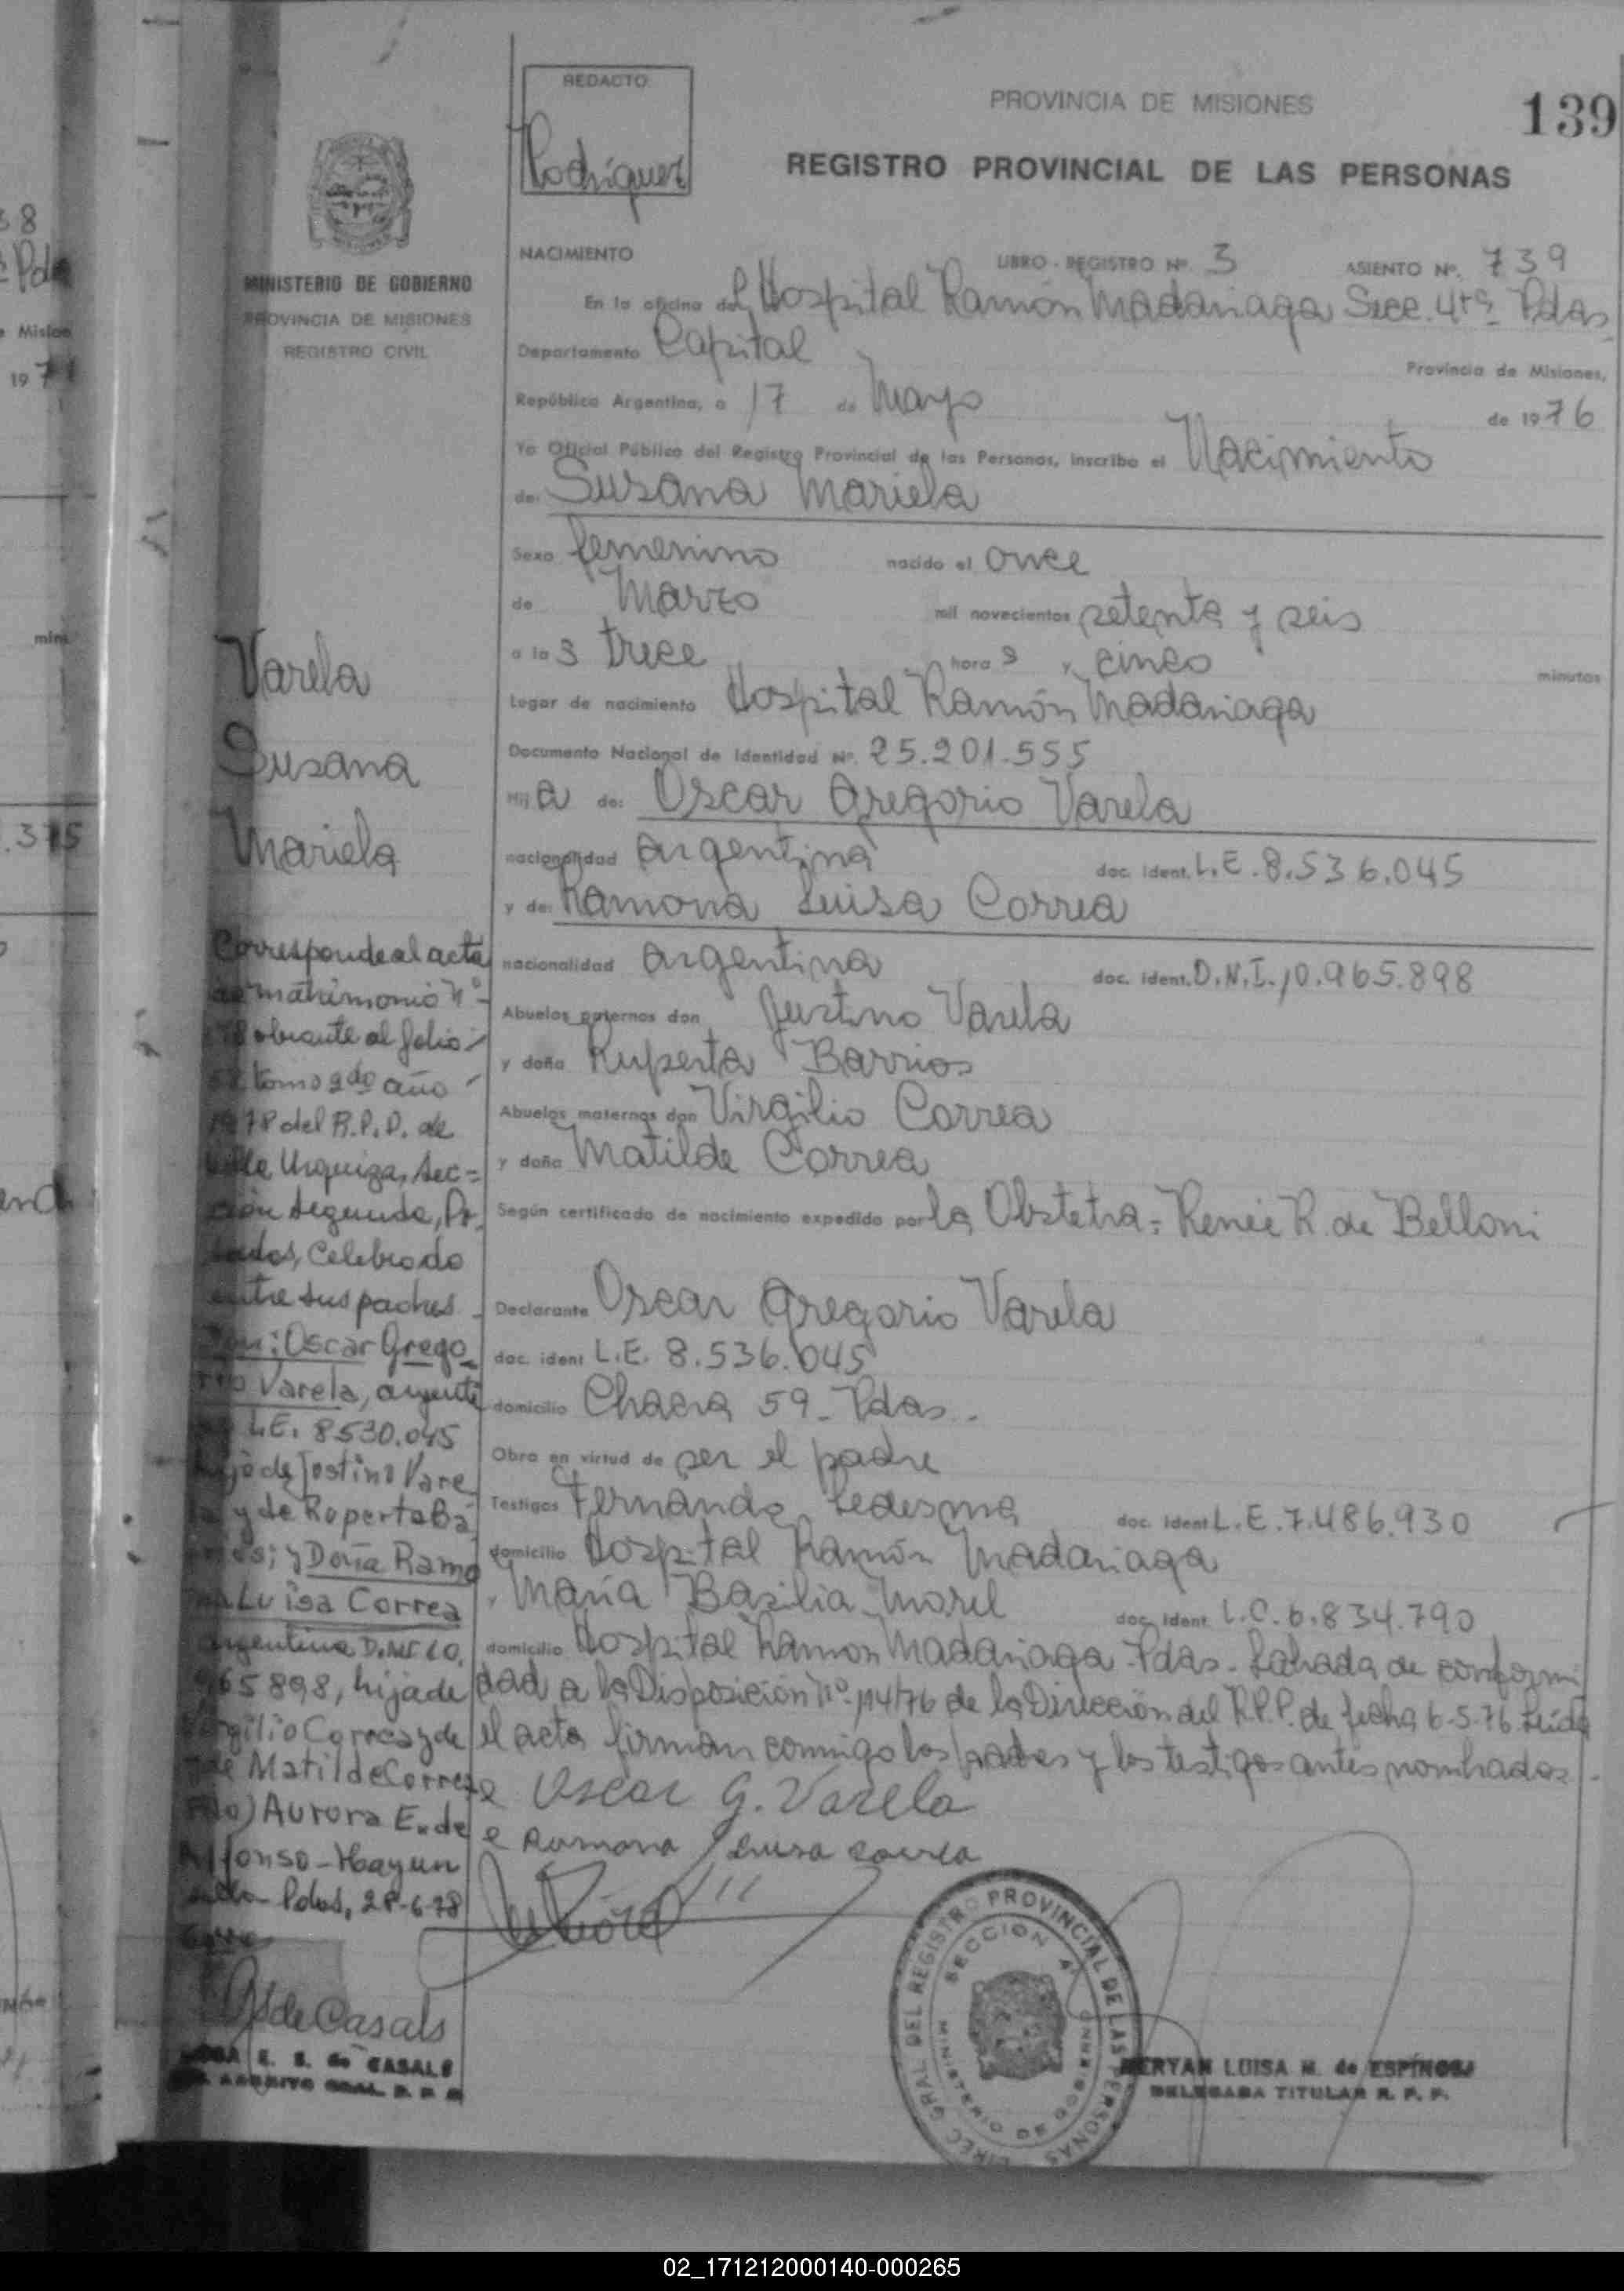 REDACTO
Rodríguez
PROVINCIA DE MISIONES
139
REGISTRO PROVINCIAL DE LAS PERSONAS
MINISTERIO DE GOBIERNO
PROVINCIA DE MISIONES
REGISTRO CIVIL
NACIMIENTO LIBRO - REGISTRO Nº. 3 ASIENTO Nº. 739
En la oficina del Hospital Ramón Madariaga Secc. 4ta Pdas
Departamento Capital Provincia de Misiones,
República Argentina, a 17 de Mayo de 1976
Yo Oficial Público del Registro Provincial de las Personas, inscribo el Nacimiento
de: Susana Mariela
Sexo femenino nacido el once
de Marzo mil novecientos setenta y seis
a las trece horas y cinco minutos
Lugar de nacimiento Hospital Ramón Madariaga
Documento Nacional de Identidad Nº. 25.201.555
Hija de: Oscar Gregorio Varela
nacionalidad argentina doc. ident. L.E. 8.536.045
y de: Ramona Luisa Correa
nacionalidad argentina doc. ident. D.N.I. 10.965.898
Abuelos paternos don Justino Varela
y doña Ruperta Barrios
Abuelos maternos don Virgilio Correa
y doña Matilde Correa
Según certificado de nacimiento expedido por la Obstetra - Renée R. de Belloni
Declarante Oscar Gregorio Varela
doc. ident L.E. 8.536.045
domicilio Chacra 59 - Pdas.
Obra en virtud de ser el padre
Testigos Fernando Ledesma doc. ident L.E. 7.486.930
domicilio Hospital Ramón Madariaga
y María Basilia Morel doc. ident L.C. 6.834.790
domicilio Hospital Ramón Madariaga - Pdas - Labrada de conformi
dad a la Disposición Nº 114/76 de la Dirección del R.P.P. de fecha 6-5-76. Leída
el acta firman conmigo los padres y los testigos antes nombrados.
Oscar G. Varela
Ramona Luisa Correa
Varela
Susana
Mariela
Corresponde al acta
de matrimonio nº
obrante al folio
tomo 2do año
1978 del R.P.P. de
Villa Urquiza, Sec=
ción Segunda, Po
sadas, Celebrado
entre sus padres
Don: Oscar Grego
rio Varela, argenti
no L.E. 8530.045
hijo de Jostino Vare
la y de Ruperta Ba
rrios; y Doña Ramo
na Luisa Correa
argentina D.N.I 10.
965898, hija de
Virgilio Correa y de
de Matilde Correa
Fdo) Aurora E. de
Alfonso - Hay un
sello Pdas, 28-6-78
GS de Casals
E. S. de CASALS
DIREC GRAL DEL REGISTRO PROVINCIAL DE LAS PERSONAS
SECCION 4ª
MINISTERIO DE GOBIERNO
MERYAN LUISA M. de ESPINOSA
DELEGADA TITULAR R. P. P.
02_171212000140-000265